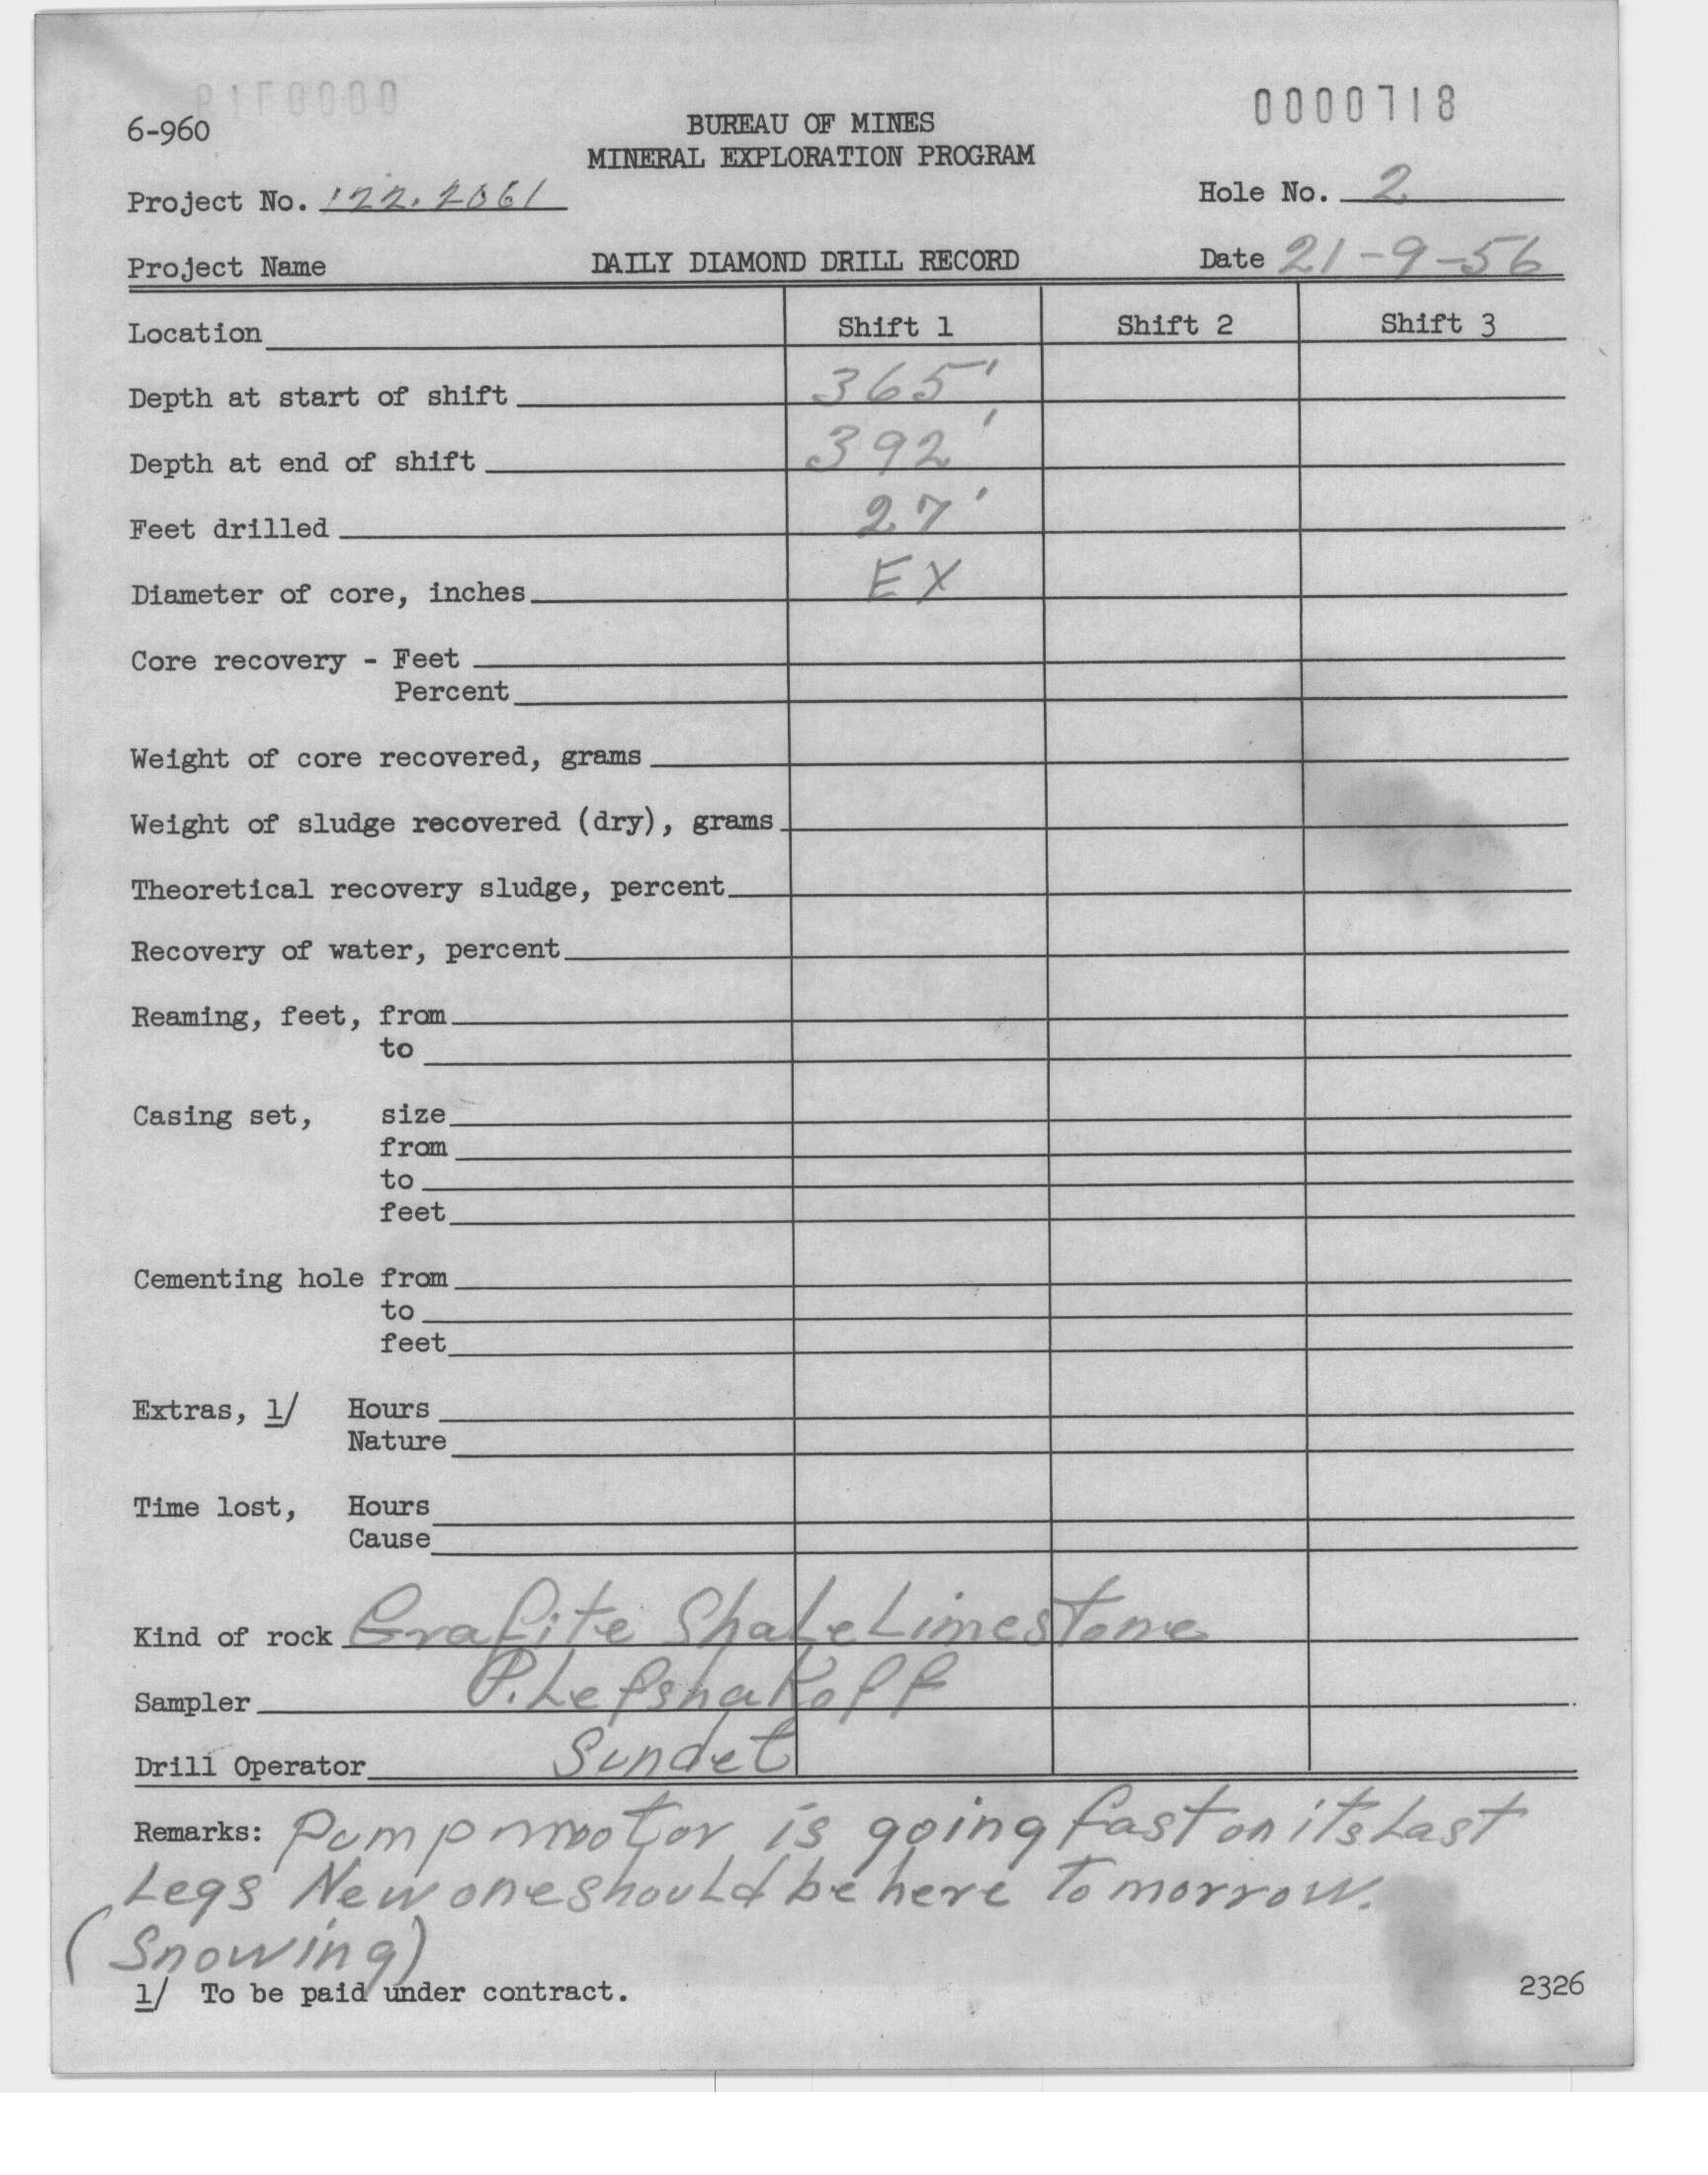 0000718
6-960
BUREAU OF MINES
MINERAL EXPLORATION PROGRAM
Project No. 122.2061
Hole No. 2
Project Name
DAILY DIAMOND DRILL RECORD
Date 21-9-56
Location Shift 1 Shift 2 Shift 3
Depth at start of shift 365'
Depth at end of shift 392'
Feet drilled 27'
Diameter of core, inches EX
Core recovery - Feet
Percent
Weight of core recovered, grams
Weight of sludge recovered (dry), grams
Theoretical recovery sludge, percent
Recovery of water, percent
Reaming, feet, from
to
Casing set, size
from
to
feet
Cementing hole from
to
feet
Extras, 1/ Hours
Nature
Time lost, Hours
Cause
Kind of rock Grafite Shale Limestone
Sampler P. Lefshakoff
Drill Operator Sundet
Remarks: Pump mootor is going fast on its Last
Legs New one should be here Tomorrow.
(Snowing)
1/ To be paid under contract.
2326